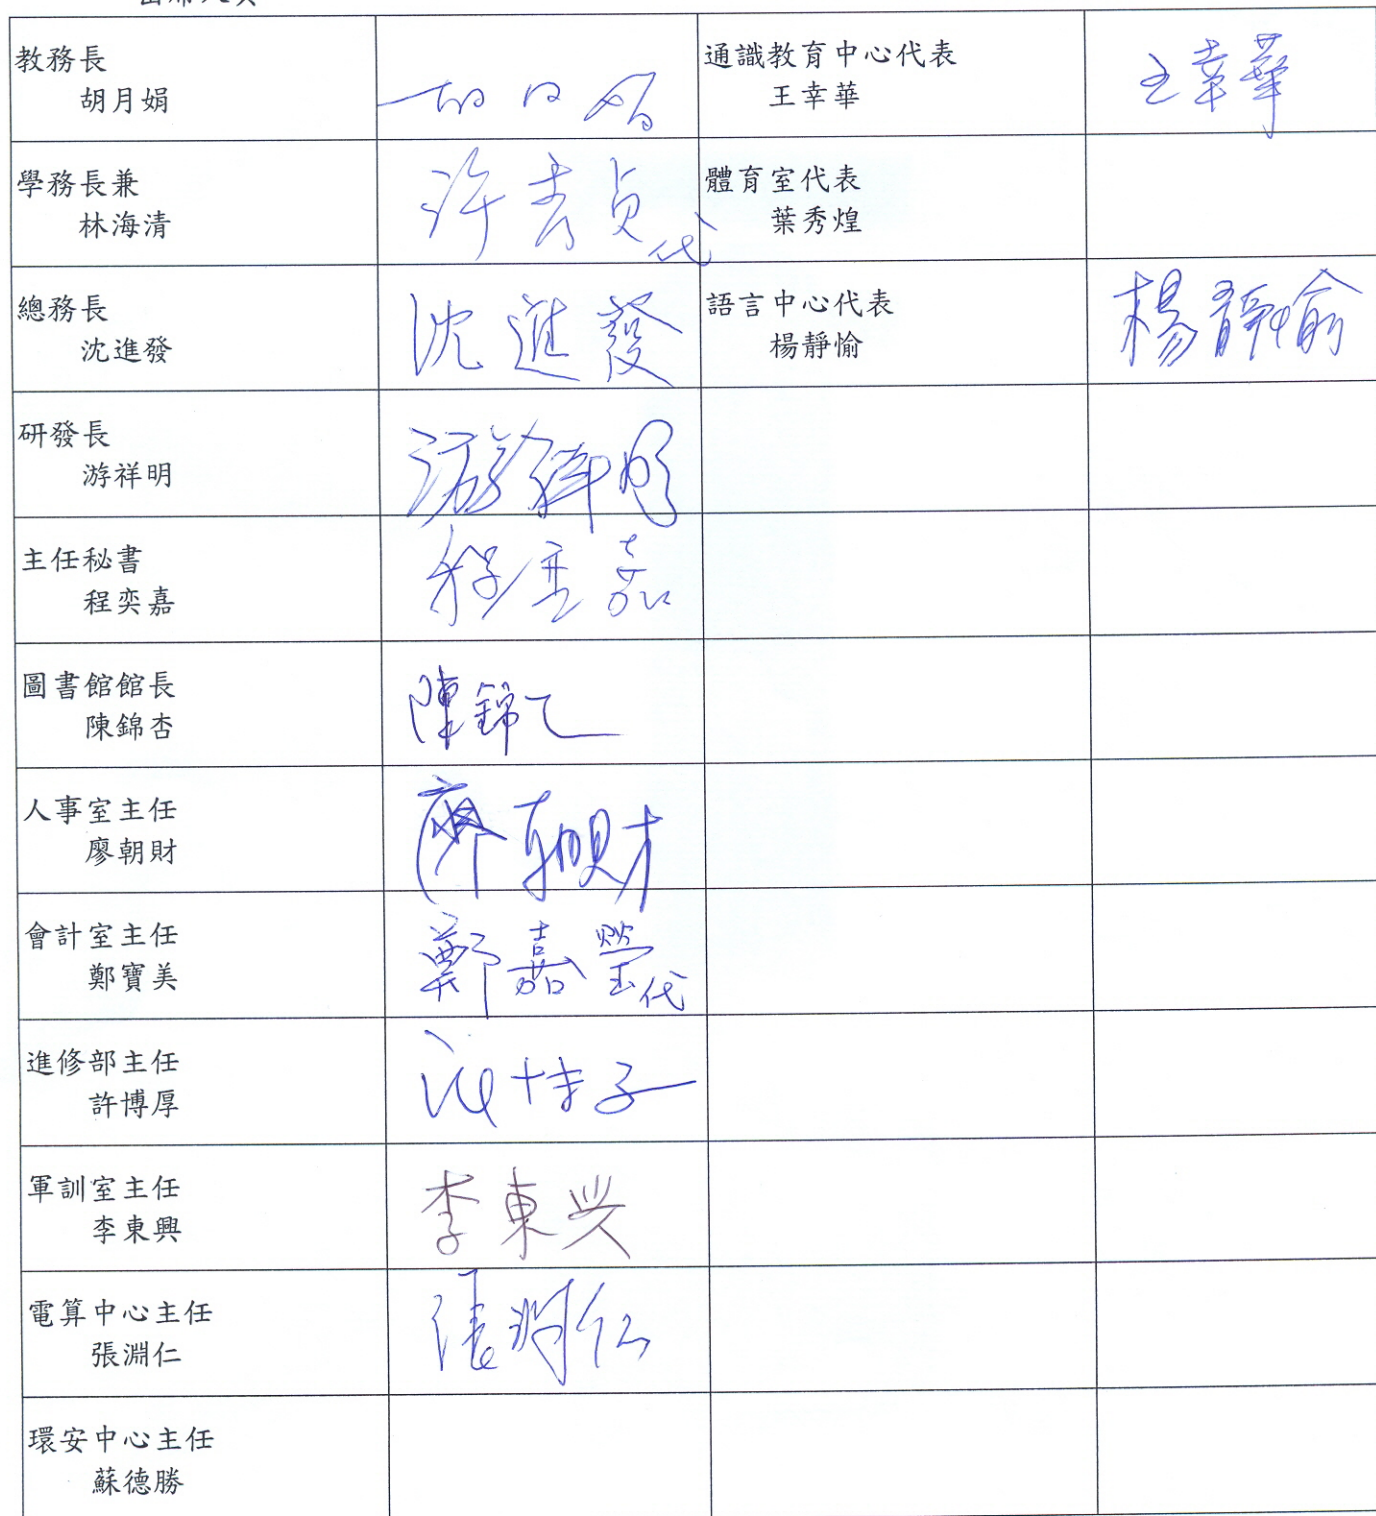 出席人員
教務長
胡月娟
胡月娟
通識教育中心代表
王幸華
王幸華
學務長兼
林海清
許秀貞代
體育室代表
葉秀煌
總務長
沈進發
沈進發
語言中心代表
楊靜愉
楊靜愉
研發長
游祥明
游祥明
主任秘書
程奕嘉
程奕嘉
圖書館館長
陳錦杏
陳錦
人事室主任
廖朝財
廖朝財
會計室主任
鄭寶美
鄭嘉瑩代
進修部主任
許博厚
軍訓室主任
李東興
李東興
電算中心主任
張淵仁
張淵仁
環安中心主任
蘇德勝